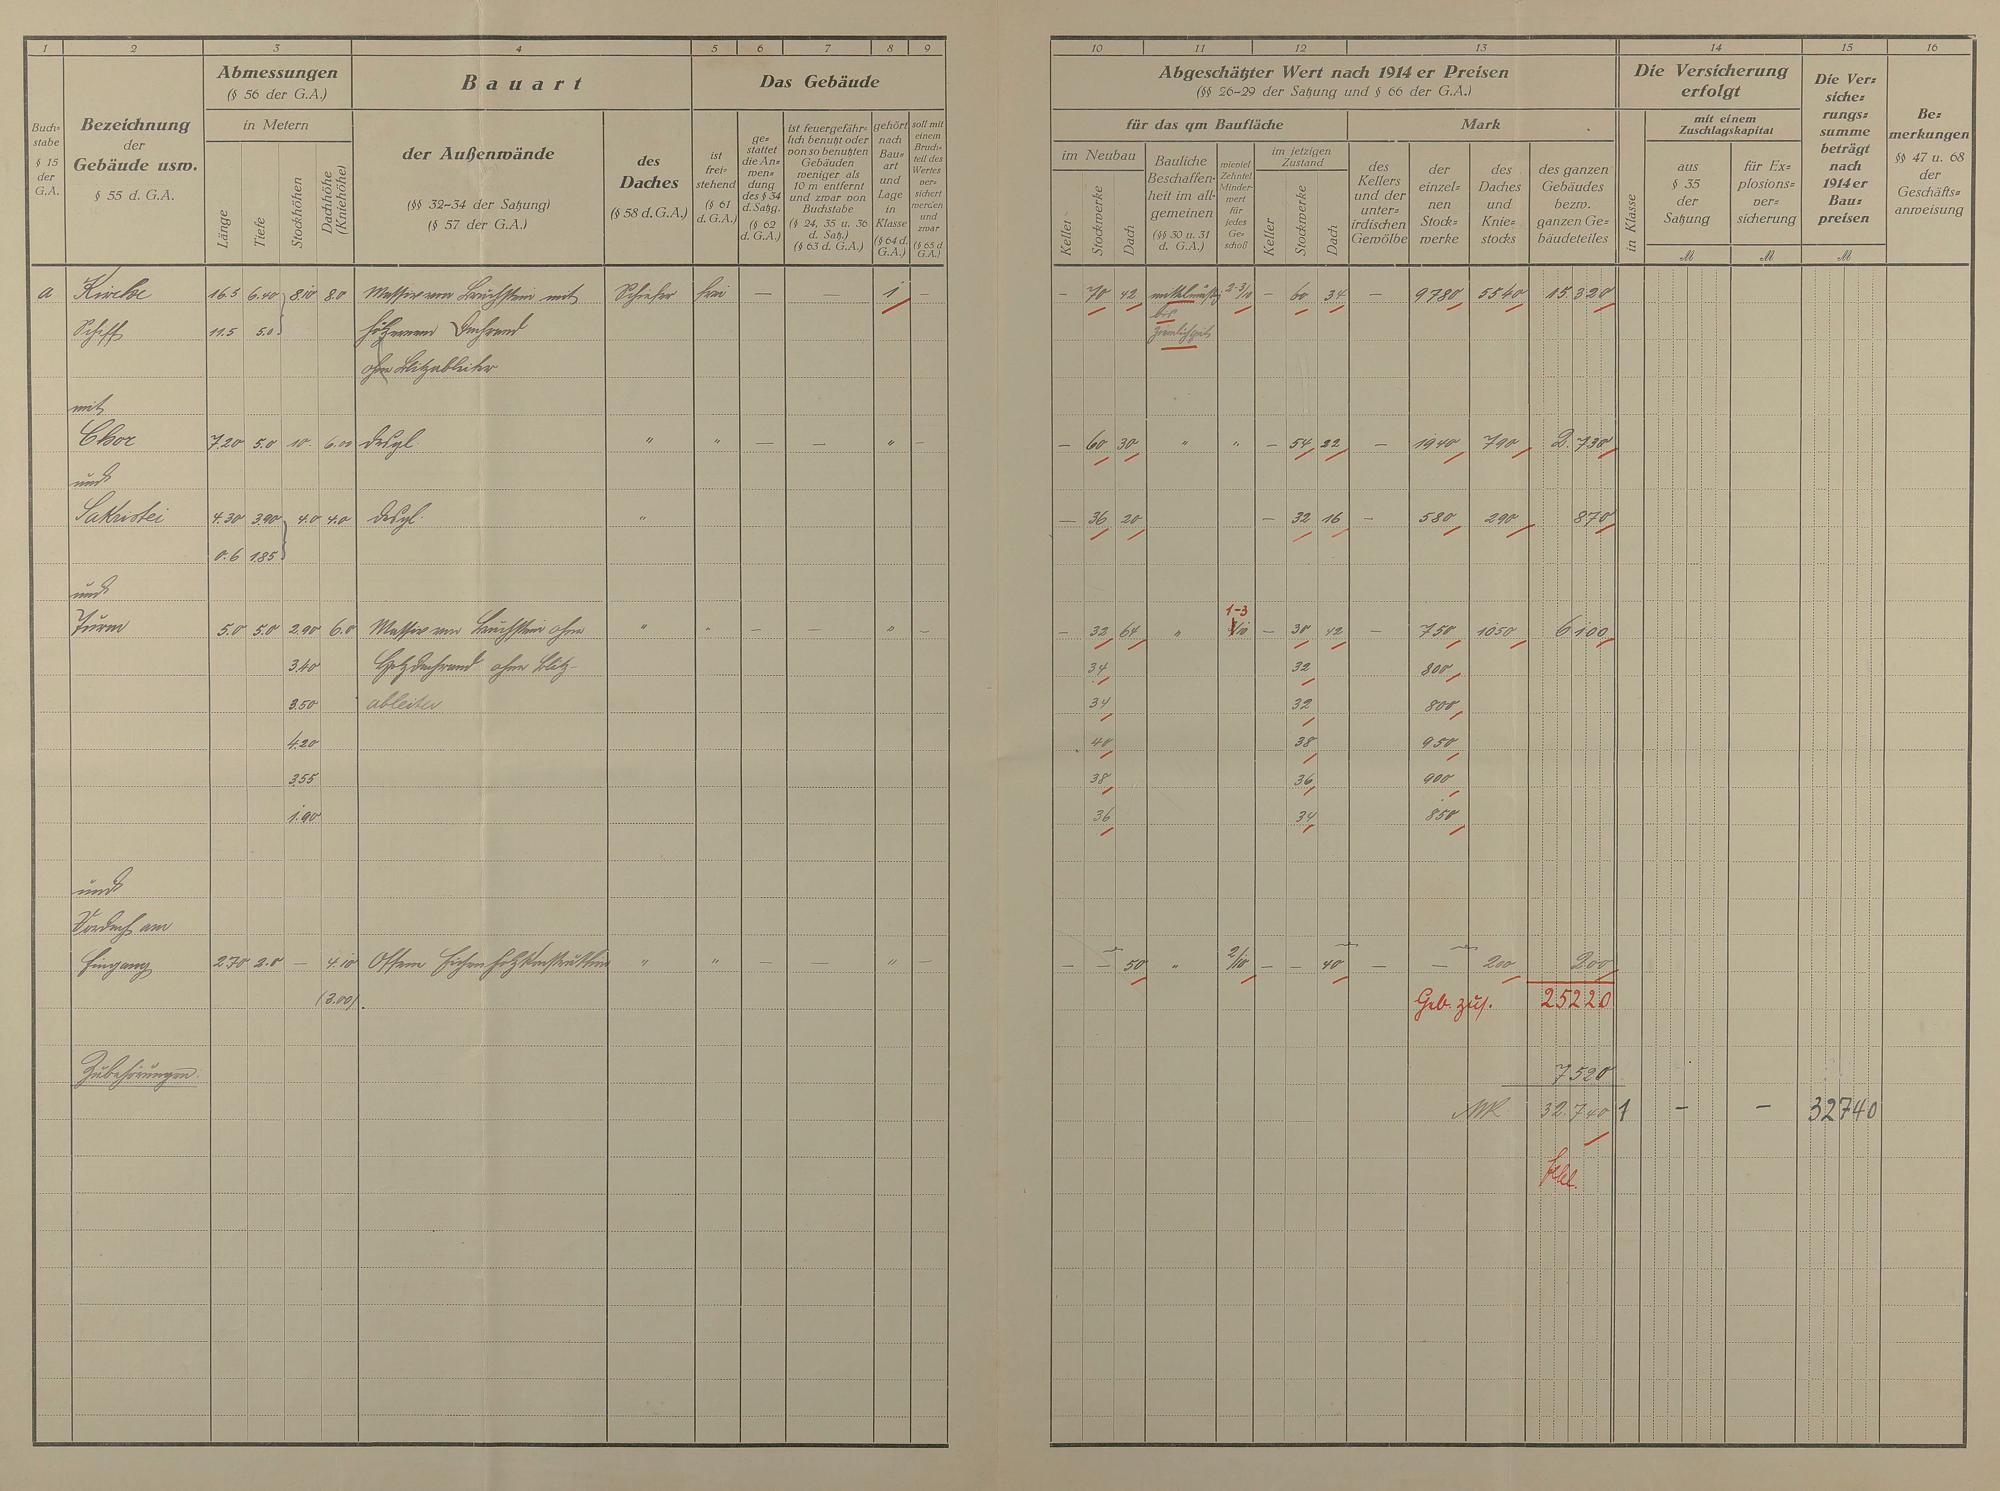 1 2 3 4 5 6 7 8 9
Buch=
stabe
§ 15
der
G.A.
Bezeichnung
der
Gebäude usw.
§ 55 d. G.A.
Abmessungen
(§ 56 der G.A.)
in Metern
Länge
Tiefe
Stockhöhen
Dachhöhe
(Kniehöhe)
Bauart
der Außenwände
(§§ 32–34 der Satzung)
(§ 57 der G.A.)
des
Daches
(§ 58 d. G.A.)
Das Gebäude
ist
frei=
stehend
(§ 61
d. G.A.)
ge=
stattet
die An=
wen=
dung
des § 34
d. Satzg.
(§ 62
d. G.A.)
ist feuergefähr=
lich benutzt oder
von so benutzten
Gebäuden
weniger als
10 m entfernt
und zwar von
Buchstabe
(§ 24, 35 u. 36
d. Satz.)
(§ 63 d. G.A.)
gehört
nach
Bau=
art
und
Lage
in
Klasse
(§ 64 d.
G.A.)
soll mit
einem
Bruch=
teil des
Wertes
ver=
sichert
werden
und
zwar
(§ 65 d.
G.A.)
a Kirche 16.5 6.40 8.10 8.0 Massiv von Bruchstein mit Schiefer frei — — 1 —
Schiff 11.5 5.0 hölzernem Dachrand
ohne Blitzableiter
mit
Chor 7.20 5.0 10. 6.00 desgl. " " — — " —
und
Sakristei 4.30 3.90 4.0 4.0 desgl. "
0.6 1.85
und
Turm 5.0 5.0 2.90 6.0 Massiv von Bruchstein ohne " " — " —
3.40 Holzdachrand ohne Blitz-
3.50 ableiter
4.20
3.55
1.90
und
Vordach am
Eingang 2.70 2.0 — 4.10 Offene Eichenholzkonstruktion " " — — " —
(3.00)
Zubehörungen.
10 11 12 13 14 15 16
Abgeschätzter Wert nach 1914 er Preisen
(§§ 26–29 der Satzung und § 66 der G.A.)
für das qm Baufläche
im Neubau
Keller
Stockwerke
Dach
Bauliche
Beschaffen=
heit im all=
gemeinen
(§§ 30 u. 31
d. G.A.)
wieviel
Zehntel
Minder=
wert
für
jedes
Ge=
schoß
im jetzigen
Zustand
Keller
Stockwerke
Dach
Mark
des
Kellers
und der
unter=
irdischen
Gewölbe
der
einzel=
nen
Stock=
werke
des
Daches
und
Knie=
stocks
des ganzen
Gebäudes
bezw.
ganzen Ge=
bäudeteiles
in Klasse
Die Versicherung
erfolgt
mit einem
Zuschlagskapital
aus
§ 35
der
Satzung
für Ex=
plosions=
ver=
sicherung
Die Ver=
siche=
rungs=
summe
beträgt
nach
1914 er
Bau=
preisen
Be=
merkungen
§§ 47 u. 68
der
Geschäfts=
anweisung
M M M
— 70 42 mittelmäßig 2-3/10 — 60 34 — 9780 5540 15.320
bis
ziemlich gut
— 60 30 " " — 54 22 — 1940 790 2.730
— 36 20 — 32 16 — 580 290 870
1-3
— 32 64 " /10 — 30 42 — 750 1050 6100
34 32 800
34 32 800
40 38 950
38 36 900
36 34 850
— — 50 " 2/10 — — 40 — — 200 200
Geb. zus. 25220
7520
Mk 32.740 1 — — 32740